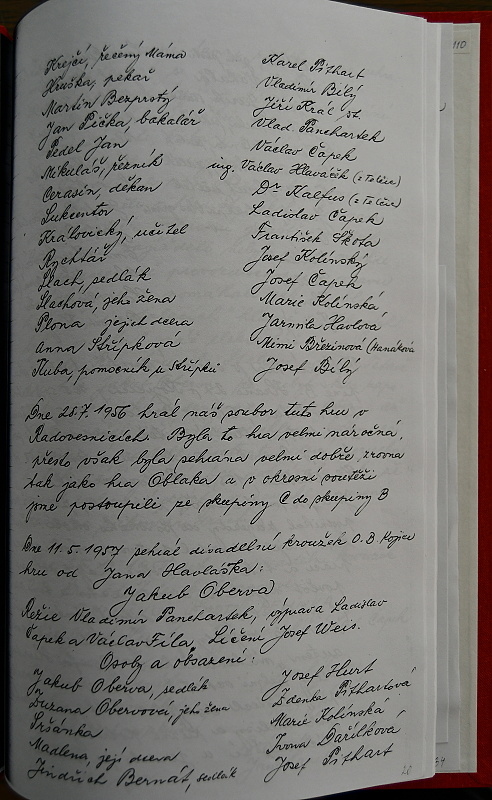 Krejčí, řečený Máma Karel Pithart
Hruška, pekař Vladimír Bílý
Martin Bezprstý Jiří Král st.
Jan Pička, bakalář Vlad Panchartek
Pedel Jan Václav Čapek
Mikuláš, řezník ing. Václav Hlaváček (z Telče)
Cerasin, děkan Dr Kalfus (z Telče)
Sukcentor Ladislav Čapek
Královický, učitel František Škota
Rychtář Josef Kolínský
Slach, sedlák Josef Čapek
Slachová, jeho žena Marie Kolínská
Plona jejich dcera Jarmila Havlová
Anna Střípková Mimi Březinová (Hanáková
Kuba, pomocník u Střípků Josef Bílý
Dne 28.7. 1956 hrál náš soubor tuto hru v
Radovesnicích. Byla to hra velmi náročná,
přesto však byla sehrána velmi dobře zrovna
tak jako hra Oblaka a v okresní soutěži
jsme postoupili ze skupiny C do skupiny B
Dne 11.5. 1957 sehrál divadelní kroužek O.B Kojice
hru od Jana Havláska:
Jakub Oberva
Režie Vladimír Panchartek, výprava Ladislav
Čapek a Václav Fila, Líčení Josef Weis.
Osoby a obsazení:
Jakub Oberva, sedlák Josef Hurt
Zuzana Obervová, jeho žena Zdenka Pithartová
Sršánka Marie Kolínská
Madlena, její dcera Ivona Dařílková
Jindřich Bernát, sedlák Josef Pithart
110
34